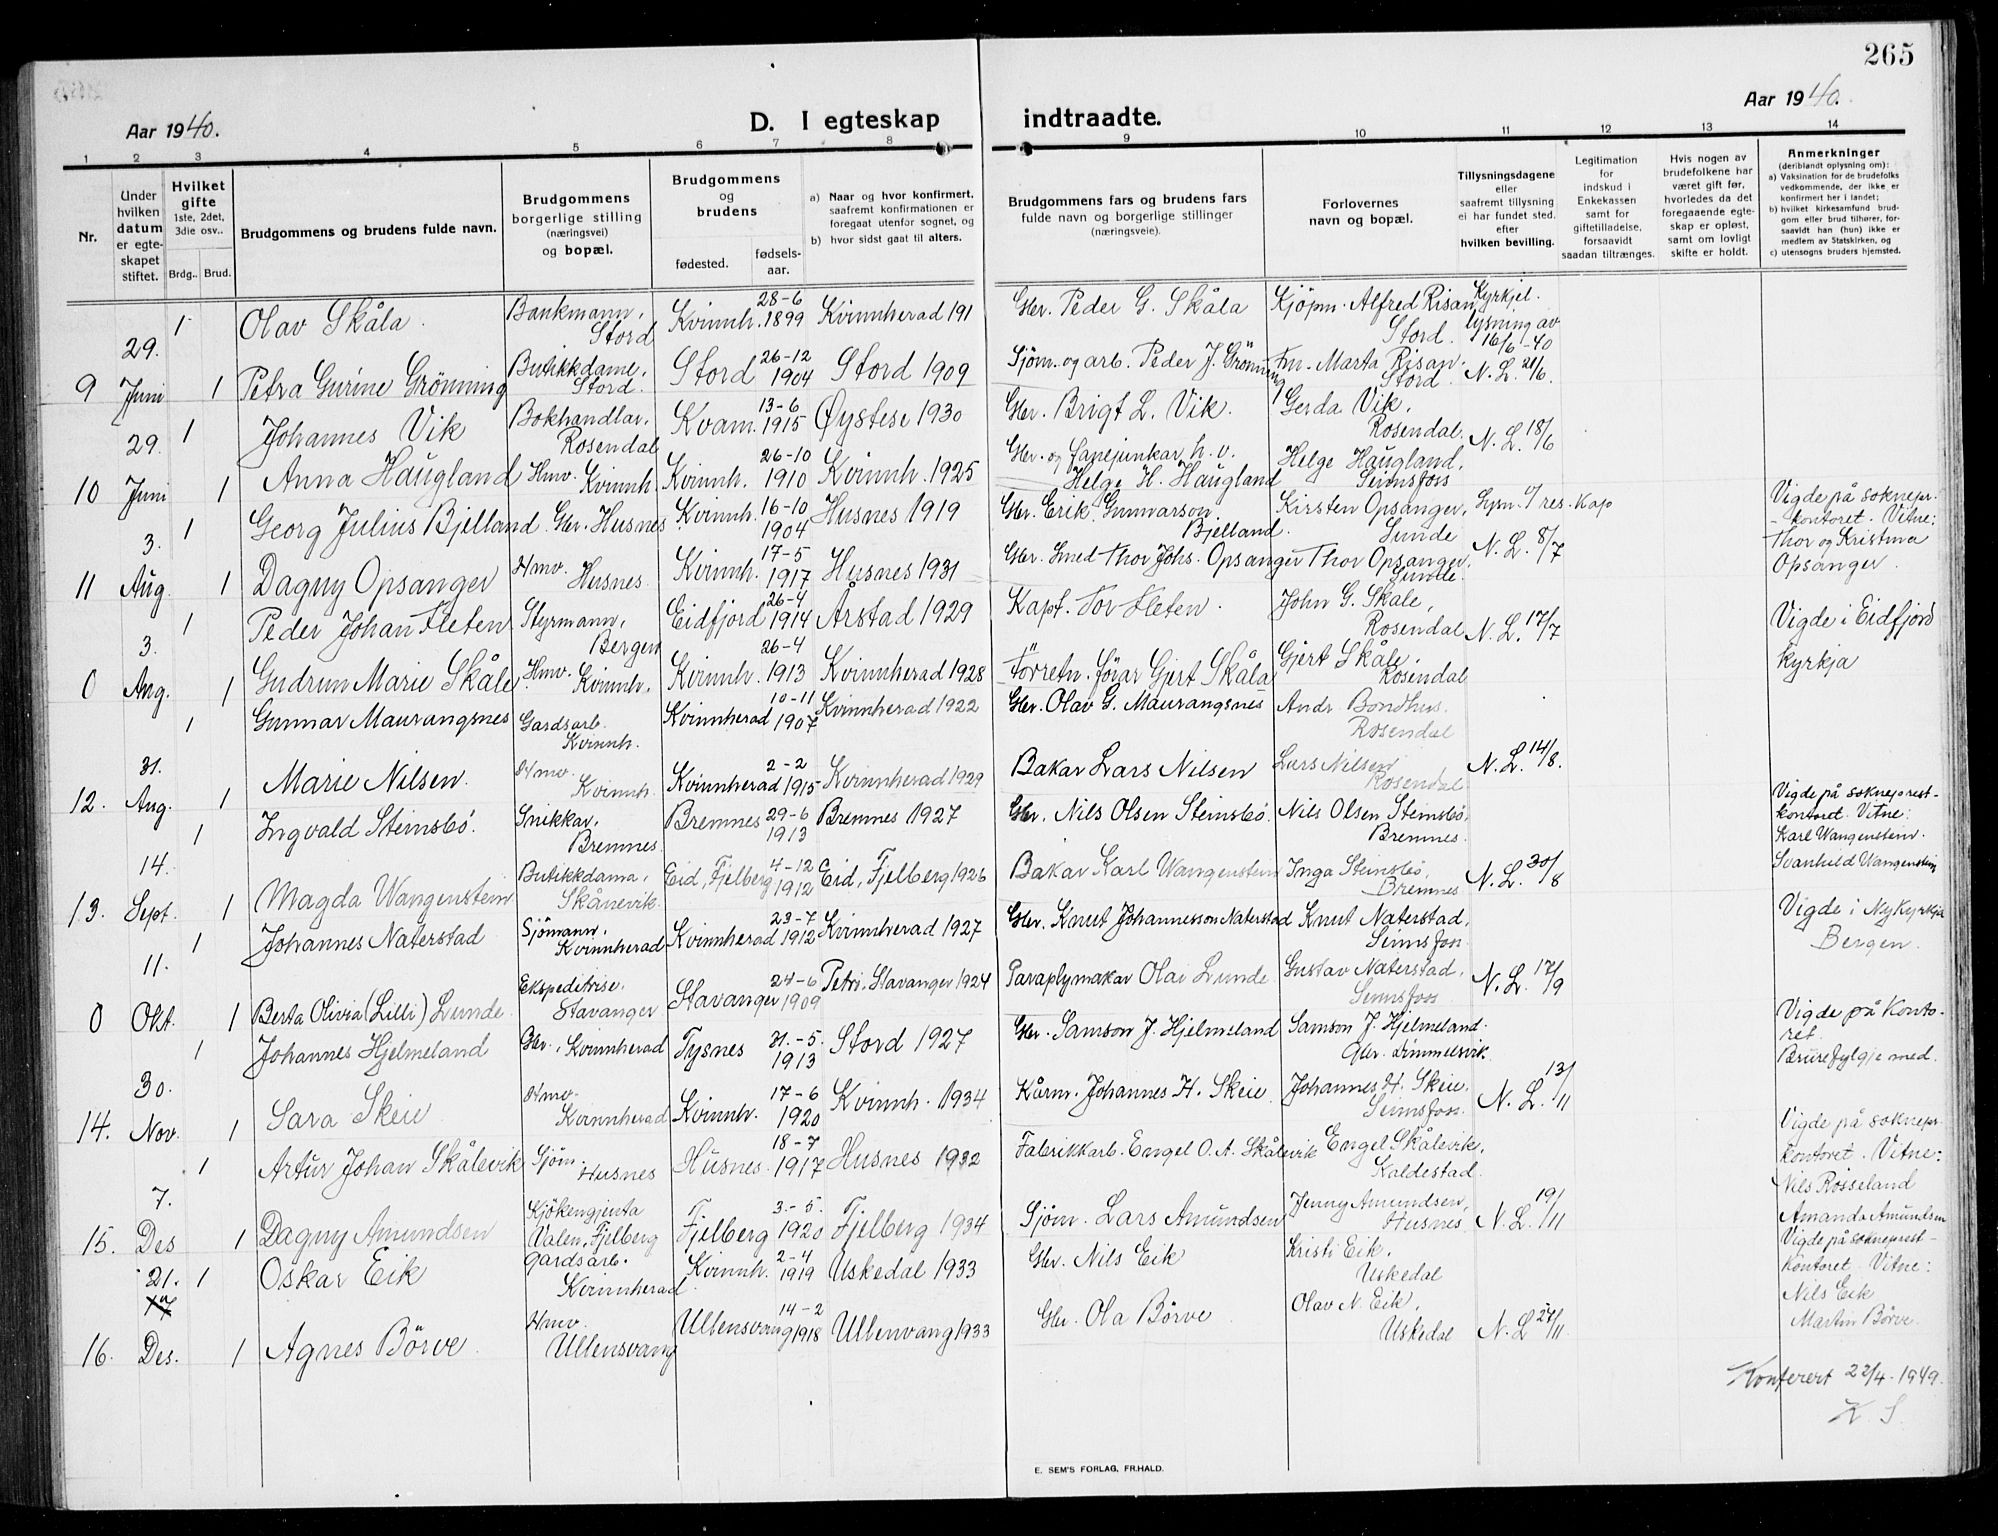 265
Aar 1940.
D. I egteskap indtraadte.
Aar 1940.
1 2 3 4 5 6 7 8 9 10 11 12 13 14
Nr.
Under hvilken datum er egte- skapet stiftet.
Hvilket gifte 1ste, 2det, 3die osv..
Brdg.. Brud.
Brudgommens og brudens fulde navn.
Brudgommens borgerlige stilling (næringsvei) og bopæl.
Brudgommens og brudens
fødested. fødsels- aar.
a) Naar og hvor konfirmert, saafremt konfirmationen er foregaat utenfor sognet, og
b) hvor sidst gaat til alters.
Brudgommens fars og brudens fars fulde navn og borgerlige stillinger (næringsveie).
Forlovernes navn og bopæl.
Tillysningsdagene eller saafremt tillysning ei har fundet sted, efter hvilken bevilling.
Legitimation for indskud i Enkekassen samt for giftetilladelse, forsaavidt saadan tiltrænges.
Hvis nogen av brudefolkene har været gift før, hvorledes da det foregaaende egte- skap er opløst, samt om lovligt skifte er holdt.
Anmerkninger (deriblandt oplysning om):
a) Vaksination for de brudefolks vedkommende, der ikke er konfirmert her i landet;
b) hvilket kirkesamfund brud- gom eller brud tilhører, for- saavidt han (hun) ikke er medlem av Statskirken, og
c) utensogns bruders hjemsted.
1 Olav Skåla. Bankmann, Stord Kvinnh. 28-6 1899 Kvinnherad 191 Gbr. Peder G. Skåla Kjöpm. Alfred Risan Stord. Kyrkjel. lysning av 16/6-40
9 29. Juni 1 Petra Gurine Grönning Butikkdame, Stord. Stord 26-12 1904 Stord 1909 Sjöm. og arb. Peder J. Grönning Fru. Marta Risan Stord. N. L. 21/6.
1 Johannes Vik Bokhandlar, Rosendal Kvam. 13-6 1915 Øystese 1930 Gbr. Brigt L. Vik. Gerda Vik, Rosendal.
10 29. Juni 1 Anna Haugland Hmv. Kvinnh. Kvinnh. 26-10 1910 Kvinnh. 1925 Helge H. Haugland Helge Haugland, Seimsfoss N. L. 18/6
1 Georg Julius Bjelland Gbr. Husnes Kvinnh. 16-10 1904 Husnes 1919 Gbr. Erik Gunnarson Bjelland. Kirsten Opsanger, Sunde res. Kap Vigde på soknepr.- kontoret. Vitne: Thor og Kristina Opsanger.
11 3. Aug. 1 Dagny Opsanger Hmv. Husnes. Kvinnh. 17-5 1917 Husnes 1931 Gbr. Smed Thor Johs. Opsanger Thor Opsanger, Sunde. N. L. 8/7
1 Peder Johan Fleten Styrmann, Bergen Eidfjord 26-4 1914 Årstad 1929 Kapt. Tov Fleten. John G. Skåle, Rosendal Vigde i Eidfjord kyrkja
0 3. Aug. 1 Gudrun Marie Skåle Hmv. Kvinnh. Kvinnh. 26-4 1913 Kvinnherad 1928 Forretn. förar Gjert Skåla Gjert Skåle, Rosendal N. L. 17/7
1 Gunnar Maurangsnes Gardsarb. Kvinnh. Kvinnherad 10-11 1907 Kvinnherad 1922 Gbr. Olav G. Maurangsnes Andr. Bondhus. Rosendal
12. 31. Aug. 1 Marie Nilsen. Hmv. Kvinnh. Kvinnherad 2-2 1915 Kvinnherad 1929 Bakar Lars Nilsen Lars Nilsen Rosendal N. L. 14/8.
1 Ingvald Steinsbö. Snikkar, Bremnes. Bremnes 29-6 1913 Bremnes 1927 Gbr. Nils Olsen Steinsbö. Nils Olsen Steinsbö, Bremnes. Vigde på sokneprest- kontoret. Vitne: Karl Wangenstein. Svanhild Wangenstein
13. 14. Sept. 1 Magda Wangenstein Butikkdama, Skånevik. Eid, Fjelberg 4-12 1912 Eid, Fjelberg 1926 Bakar Karl Wangenstein Inga Steinsbö, Bremnes N. L. 30/8
1 Johannes Naterstad Sjömann, Kvinnherad Kvinnherad 23-7 1912 Kvinnherad 1927 Gbr. Knut Johannesson Naterstad Knut Naterstad, Seimsfoss. Vigde i Nykyrkja Bergen.
0 11. Okt. 1 Berta Olivia (Lilli) Lunde Ekspeditrise. Stavanger Stavanger 24-6 1909 Petri, Stavanger 1924 Paraplymakar Olai Lunde Gustav Naterstad, Seimsfoss N. L. 17/9
1 Johannes Hjelmeland Gbr., Kvinnherad Tysnes 31.-5. 1913 Stord 1927 Gbr. Samson J. Hjelmeland Samson J. Hjelmeland. Gbr. Dimmelsvik. Vigde på Konto- ret. Brurefylgje med.
14. 30. Nov. 1 Sara Skeie Hmv. Kvinnherad Kvinnh. 17-6 1920 Kvinnh. 1934 Kårm. Johannes H. Skeie Johannes H. Skeie. Seimsfoss. N. L. 13/11
1 Artur Johan Skålevik Sjöm. Husnes Husnes. 18-7 1917 Husnes 1932 Fabrikkarb. Engel O. A. Skålevik Engel Skålevik, Kaldestad. Vigde på soknepr. kontoret. Vitne: Nils Rosseland Amanda Amundsen
15. 7. Des 1 Dagny Amundsen Kjökengjenta Valen, Fjelberg Fjelberg 3.-5. 1920 Fjelberg 1934 Sjöm. Lars Amundsen Jenny Amundsen, Husnes N. L. 19/11
1 Oskar Eik Gardsarb. Kvinnherad. Kvinnh. 2-4 1919 Uskedal 1933 Gbr. Nils Eik Kristi Eik. Uskedal Vigde på sokneprest- kontoret. Vitne: Nils Eik Martin Börve.
16. 21. Des. 1 Agnes Börve. Hmv. Ullensvang Ullensvang 14-2 1918 Ullenvang 1933 Gbr. Ola Börve Olav N. Eik, Uskedal N. L 27/11
Konferert 22/4-1949.
K. S.
E. SEM'S FORLAG, FR.HALD.